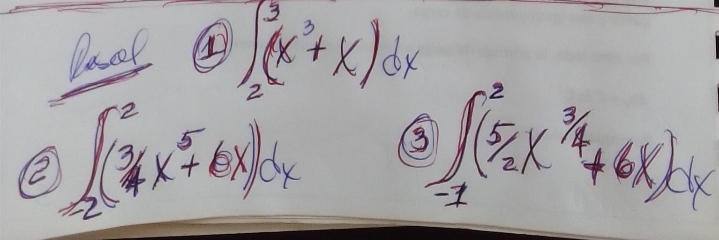 ① ∫₂³ (x³ + x) dx
② ∫₋₂² (3/4 x⁵ + 6x) dx
③ ∫₋₁² (5/2 x^(3/4) + 6x) dx